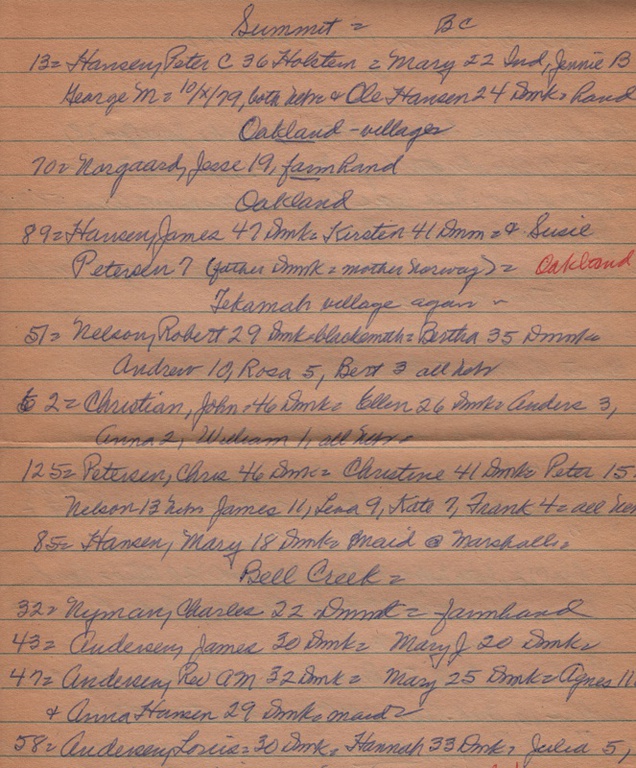 Summit = BC
13= Hansen, Peter C 36 Holstein = Mary 22 Ind, Jennie B
George M = 10/X/79, both Nebr & Ole Hansen 24 Dmk = hand
Oakland - village
70= Norgaard, Jesse 19, farmhand
Oakland
89= Hansen, James 47 Dmk = Kirsten 41 Dmm = & Susie
Petersen 7 (father Dmmk = mother Norway) = Oakland
Tekamah village again
51= Nelson, Robert 29 Dmk = blacksmith = Bertha 35 Dmmk =
Andrew 10, Rosa 5, Bert 3 all Nebr
2= Christian, John = 46 Dmk = Ellen 26 Dmk = Anders 3,
Anna 2, William 1, all Nebr =
125= Petersen, Chris 46 Dmk = Christine 41 Dmk = Peter 15
Nelson 13 Nebr James 11, Lena 9, Kate 7, Frank 4 = all Neb
85= Hansen, Mary 18 Dmk = maid @ Marshalls =
Bell Creek =
32= Nyman, Charles 22 Dmmk = farmhand
43= Andersen, James 30 Dmk = Mary J 20 Dmk =
47= Andersen, Rev AM 32 Dmk = Mary 25 Dmk = Agnes
& Anna Hansen 29 Dmk = maid =
58= Andersen, Louis = 30 Dmk = Hannah 33 Dmk = Julia 5,